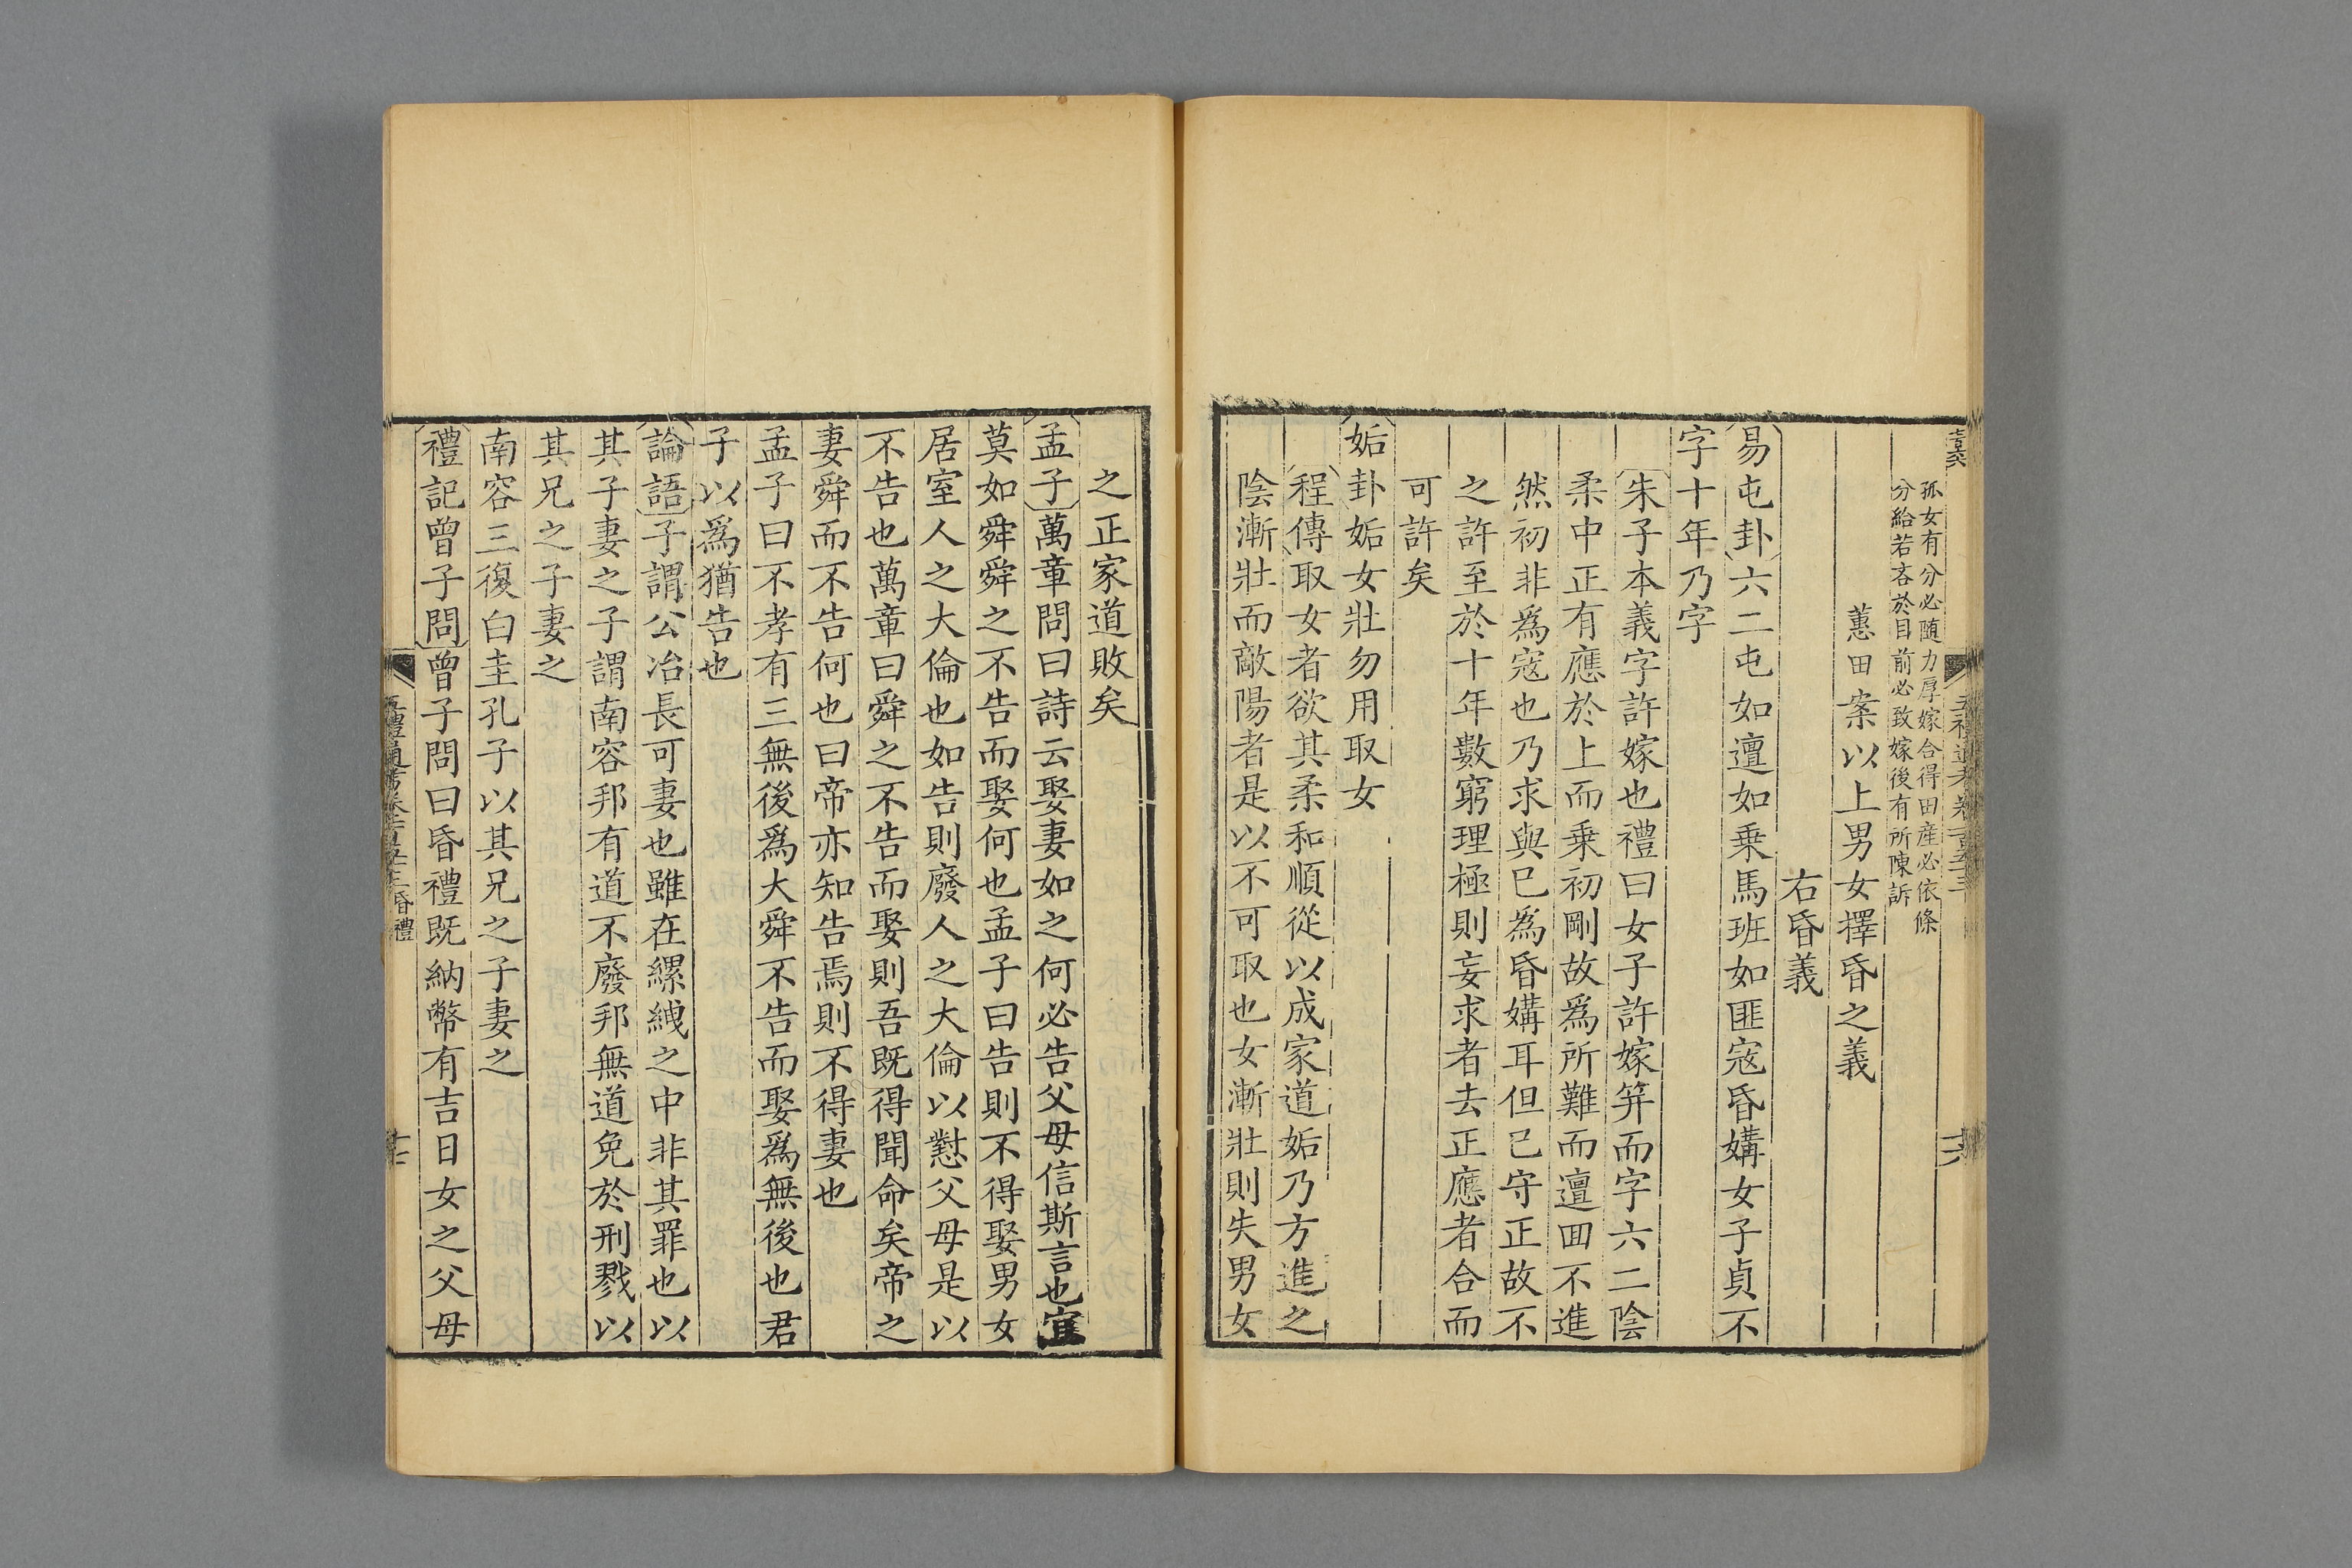 孤女有分必随力厚嫁合得田産必依條
分給若吝於目前必致嫁後有所陳訴
蕙田案以上男女擇昏之義
右昏義
易屯卦六二屯如邅如乗馬班如匪寇昏媾女子貞不
字十年乃字
朱子本義字許嫁也禮曰女子許嫁笄而字六二陰
柔中正有應於上而乗初剛故爲所難而邅回不進
然初非爲寇也乃求與已爲昏媾耳但已守正故不
之許至於十年數窮理極則妄求者去正應者合而
可許矣
姤卦姤女壯勿用取女
程傳取女者欲其柔和順從以成家道姤乃方進之
陰漸壯而敵陽者是以不可取也女漸壯則失男女
之正家道敗矣
孟子萬章問曰詩云娶妻如之何必告父母信斯言也宜
莫如舜舜之不告而娶何也孟子曰告則不得娶男女
居室人之大倫也如告則廢人之大倫以懟父母是以
不告也萬章曰舜之不告而娶則吾既得聞命矣帝之
妻舜而不告何也曰帝亦知告焉則不得妻也
孟子曰不孝有三無後爲大舜不告而娶爲無後也君
子以爲猶告也
論語子謂公冶長可妻也雖在縲絏之中非其罪也以
其子妻之子謂南容邦有道不廢邦無道免於刑戮以
其兄之子妻之
南容三復白圭孔子以其兄之子妻之
禮記曾子問曾子問曰昏禮既納幣有吉日女之父母